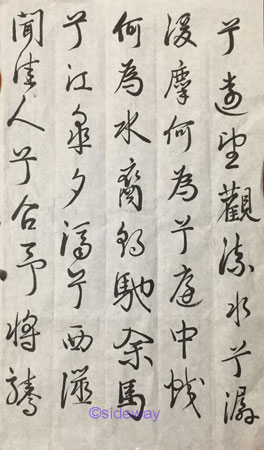 兮遠望觀流水兮潺
湲麋何為兮庭中蛟
何為水裔朝馳余馬
兮江皋夕濟兮西澨
聞佳人兮召予將騰
©sideway